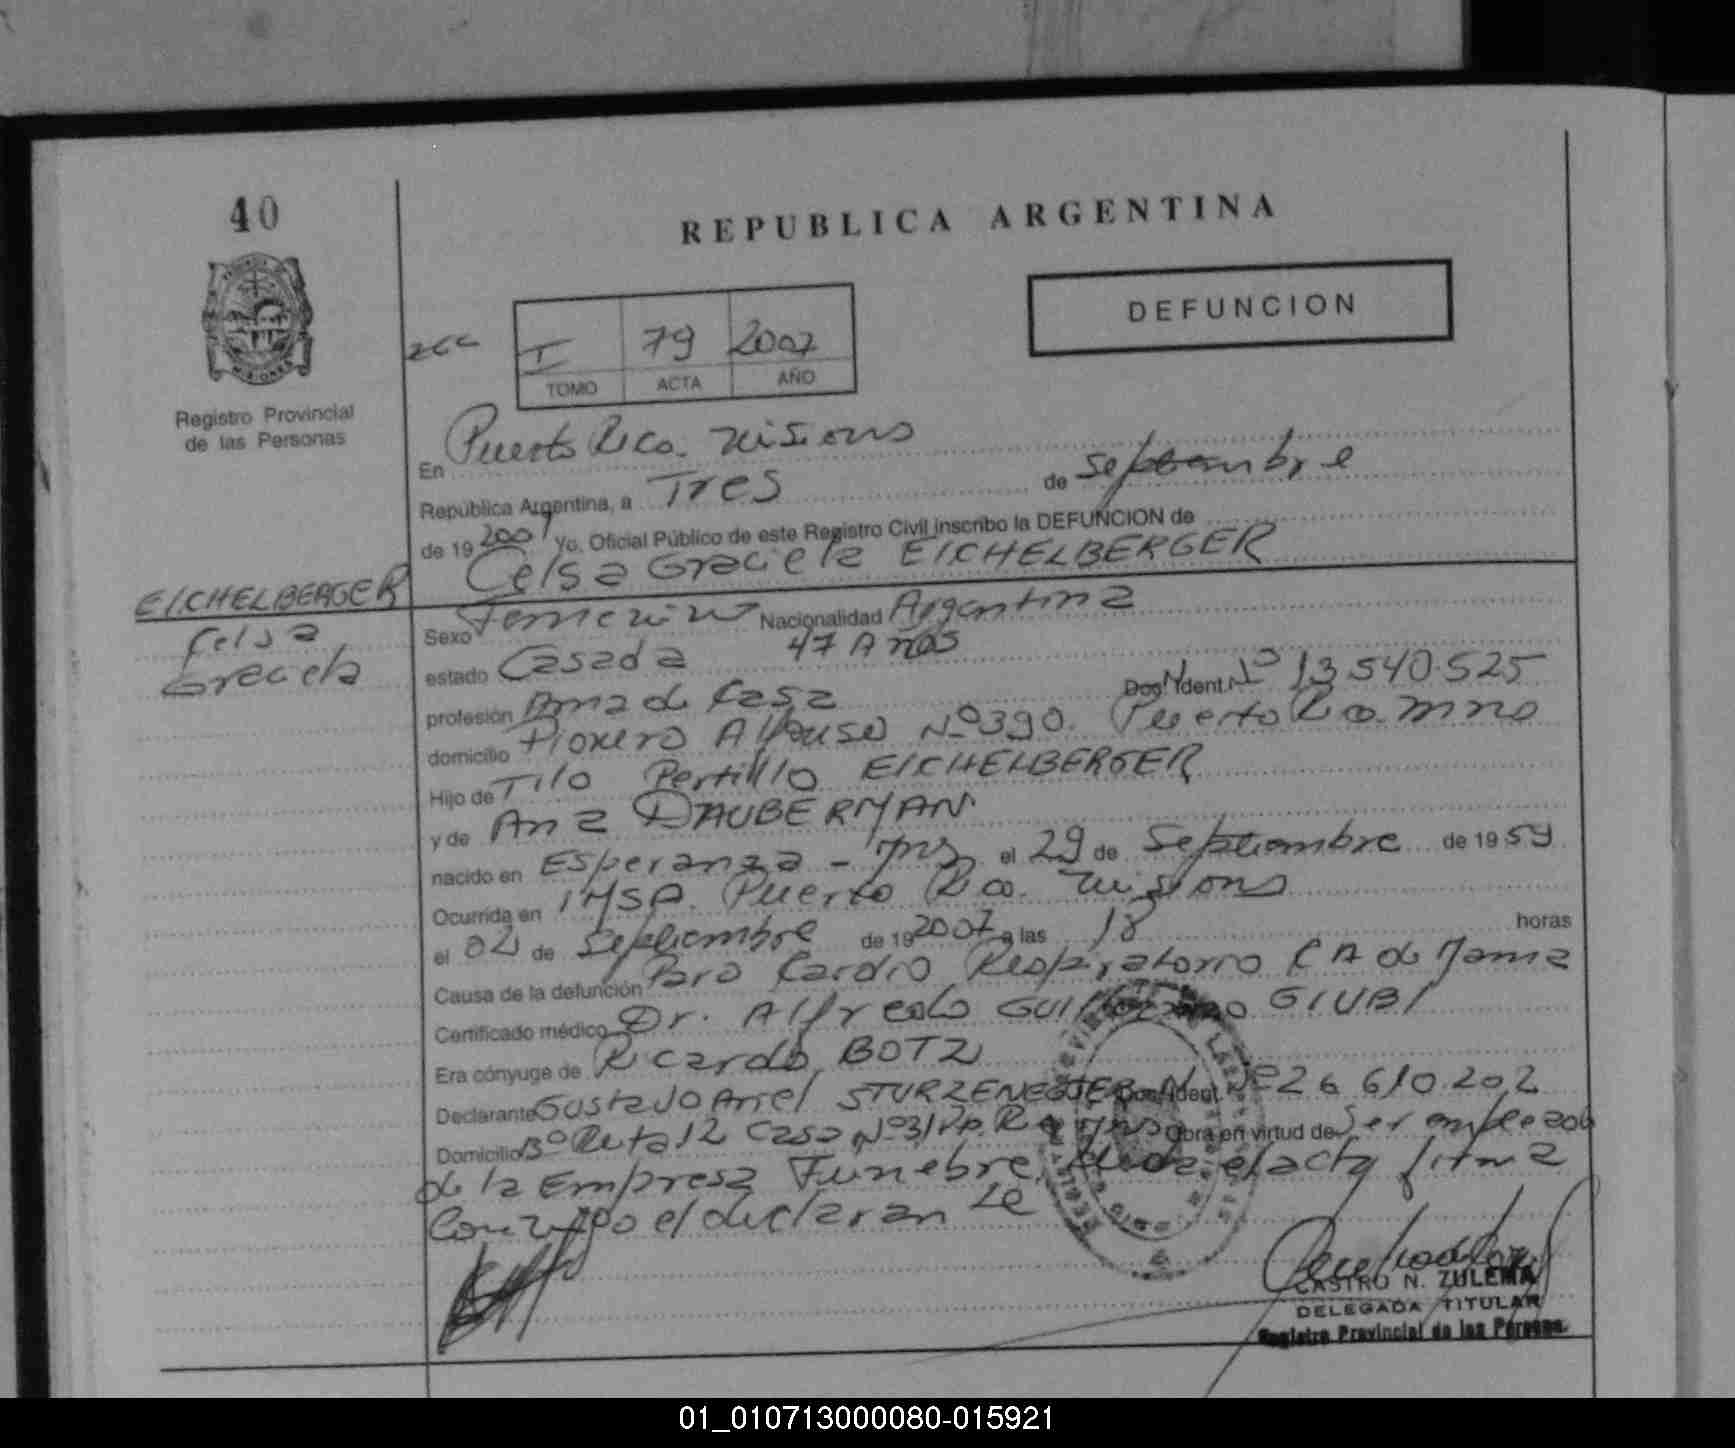 40
REPUBLICA ARGENTINA
DEFUNCION
I 79 2007
TOMO ACTA AÑO
Registro Provincial
de las Personas
En Puerto Rico. Misiones
República Argentina, a Tres de Septiembre
de 19 2007 yo, Oficial Público de este Registro Civil inscribo la DEFUNCION de
Celsa Graciela EICHELBERGER
EICHELBERGER
Celsa
Graciela
Sexo Femenino Nacionalidad Argentina
estado Casada 47 Años
profesión Ama de Casa Doc. Ident. Nº 13.540.525
domicilio Pionero Alfonso Nº 390. Puerto Rico. Mnes
Hijo de Tilo Pertillo EICHELBERGER
y de Ana DAUBERMAN
nacido en Esperanza - Mns el 29 de Septiembre de 1959
Ocurrida en IMSA. Puerto Rico. Misiones
el 02 de Septiembre de 19 2007 a las 18 horas
Causa de la defunción Paro Cardio Respiratorio CA de Mama
Certificado médico Dr. Alfredo Guillermo GIUBI
Era cónyuge de Ricardo BOTZ
Declarante Gustavo Ariel STURZENEGGER Doc. Ident. Nº 26.610.202
Domicilio Bº Ruta 12 Casa Nº 31 Pp. Rco Mns Obra en virtud de Ser empleado
de la Empresa Funebre. Leida el acta firma
Conmigo el declarante
CASTRO N. ZULEMA
DELEGADA TITULAR
Registro Provincial de las Personas
01_010713000080-015921